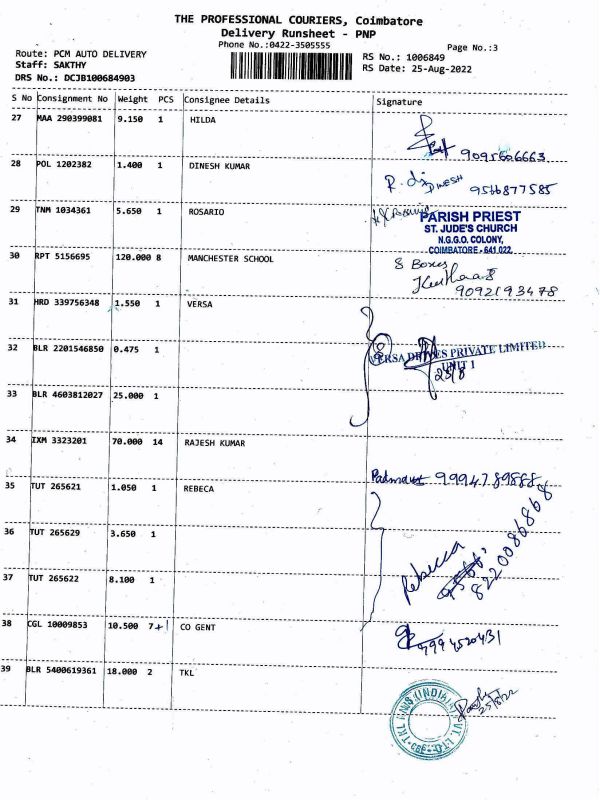 THE PROFESSIONAL COURIERS, Coimbatore
Delivery Runsheet - PNP
Phone No.:0422-3505555
Page No.:3
Route: PCM AUTO DELIVERY
Staff: SAKTHY
DRS No.: DCJB100684903
RS No.: 1006849
RS Date: 25-Aug-2022
S No Consignment No Weight PCS Consignee Details Signature
27 MAA 290399081 9.150 1 HILDA
9095606663
28 POL 1202382 1.400 1 DINESH KUMAR
DINESH 9566877585
29 TNM 1034361 5.650 1 ROSARIO
PARISH PRIEST
ST. JUDE'S CHURCH
N.G.G.O. COLONY,
COIMBATORE - 641 022.
30 RPT 5156695 120.000 8 MANCHESTER SCHOOL
8 Boxes
9092193478
31 HRD 339756348 1.550 1 VERSA
32 BLR 2201546850 0.475 1
VERSA DRIVES PRIVATE LIMITED
UNIT 1
25/8
33 BLR 4603812027 25.000 1
34 IXM 3323201 70.000 14 RAJESH KUMAR
9994789888
35 TUT 265621 1.050 1 REBECA
36 TUT 265629 3.650 1
Rebecca
8220086868
37 TUT 265622 8.100 1
38 CGL 10009853 10.500 7+1 CO GENT
9994520431
39 BLR 5400619361 18.000 2 TKL
25/8/22